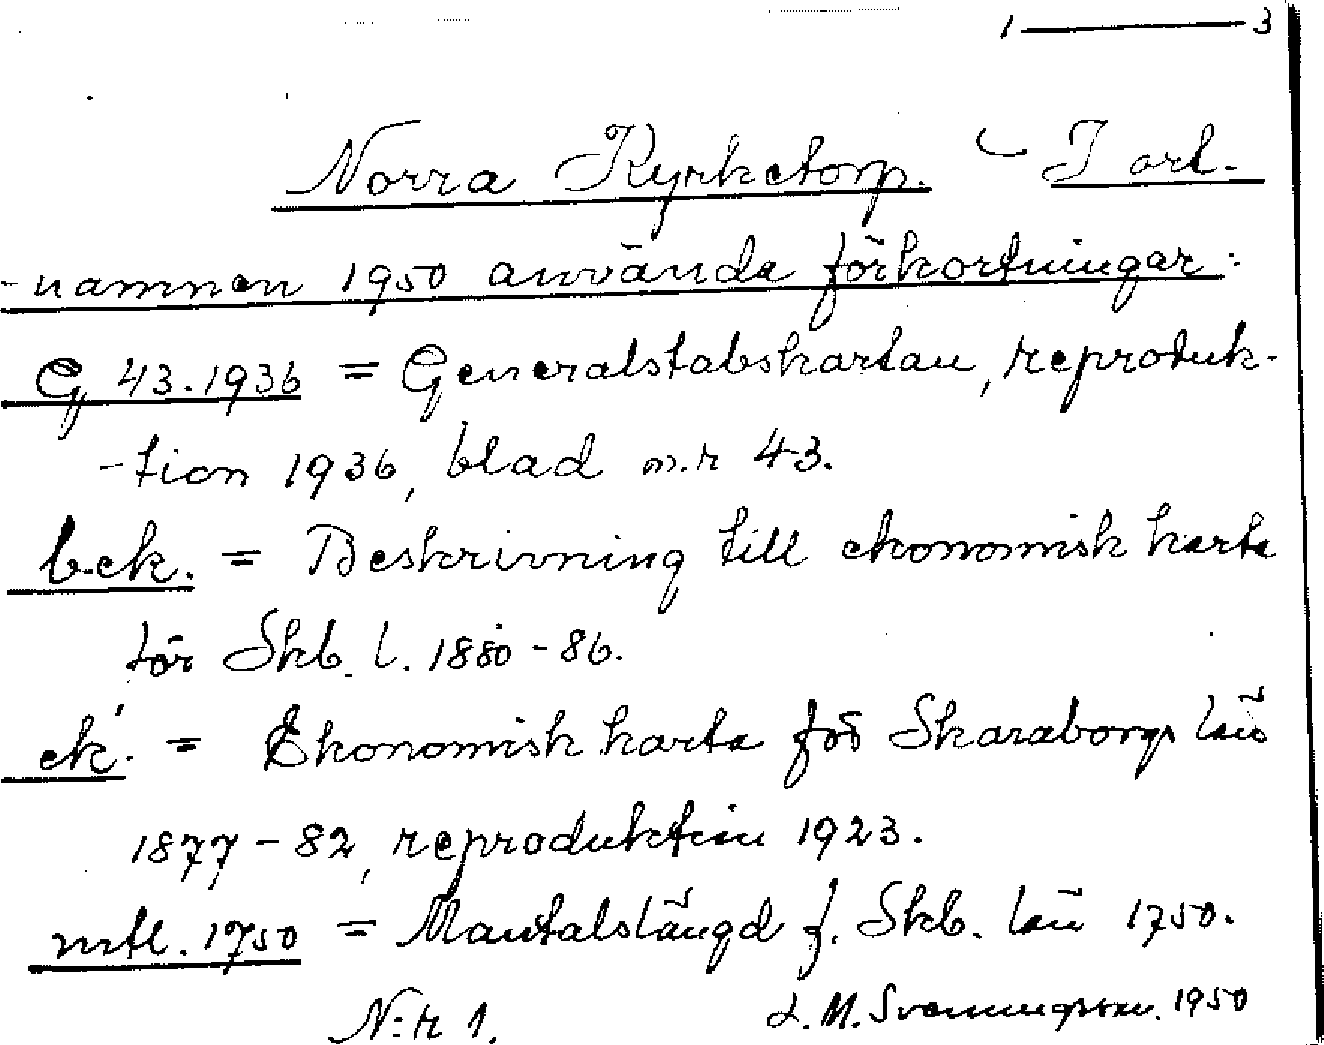 1 — 3
Norra Kyrketorp. I ort-
-namnen 1950 använda förkortningar:
G, 43.1936 = Generalstabskartan, reproduk-
-tion 1936, blad n.r 43.
b.ek. = Beskrivning till ekonomisk karta
för Skb. l. 1880-86.
ek. = Ekonomisk karta för Skaraborgs län
1877-82, reproduktion 1923.
mtl. 1750 = Mantalslängd f. Skb. län 1750.
N:r 1. L. M. Svenungsson. 1950